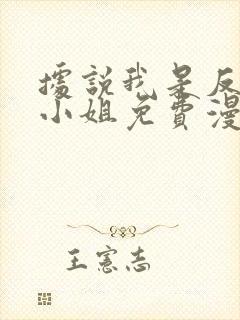 據說我是反
小姐免費漫
王憲志